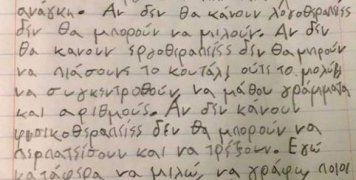 ανάγκη. Αν δεν θα κάνουν λογοθεραπείες
δεν θα μπορούν να μιλούν. Αν δεν
θα κάνουν εργοθεραπείες δεν θα μπορούν
να πιάσουν το κουτάλι ούτε το μολύβι
να συγκεντρωθούν να μάθου γράμματα
και αριθμούς. Αν δεν κάνουν
φυσικοθεραπείες δεν θα μπορούν να
περπατήσουν και να τρέξουν. Εγώ
κατάφερα να μιλώ, να γράφω,